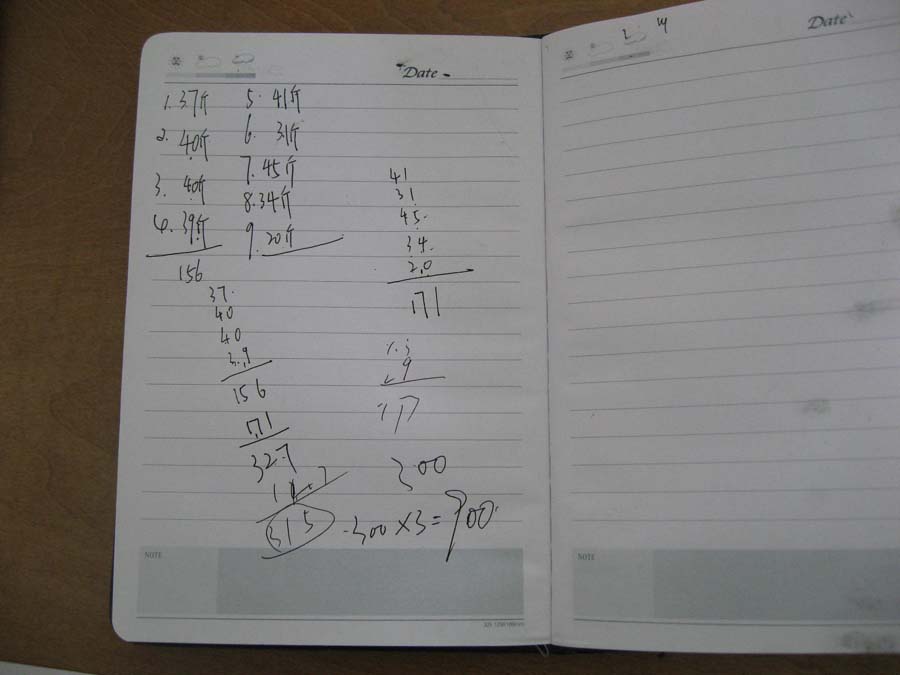 Date
1. 37斤
2. 40斤
3. 40斤
4. 39斤
156
5. 41斤
6. 31斤
7. 45斤
8. 34斤
9. 20斤
37
40
40
39
156
171
327
315
41
31
45
34
20
171
9
300
300×3=900
NOTE
Date
NOTE